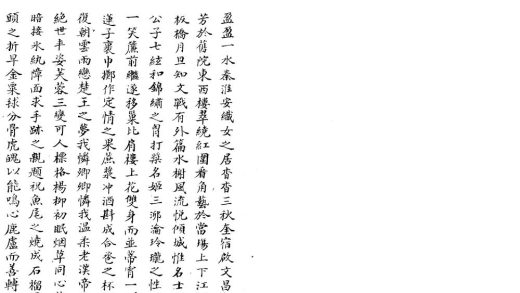 盈盈一水秦淮安織女之居杳杳三秋奎宿啟文昌
芳於舊院東西樓翠繞紅圍看角藝於當場上下江
板橋月旦知文戰有外篇水榭風流悅傾城惟名士
公子七絃和錦繡之胷打槳名姬三瀹玲瓏之性
一笑簾前繼遂移巢比肩樓上花雙身而並蒂宵一
蓮子裹巾擲作定情之果蔗漿冲酒斟成合卺之杯
復朝雲雨戀楚王之夢我憐卿卿憐我溫柔老漢帝
絕世丰姿芙蓉三變可人標格楊柳初眠烟草同心
暗接氷紈障面求手跡之親題祝魚尾之燒成石榴
頭之折早金粟毬分骨虎魄以能鳴心鹿盧而善轉